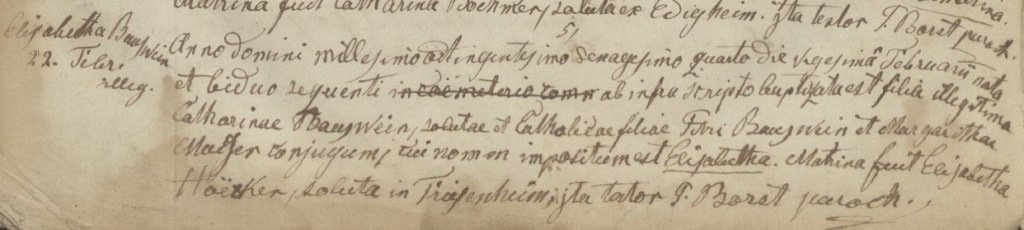 Matrina fuit Catharina Boehmer, soluta ex Edigheim. Ita testor F. Borst paroch.
Elisabetha Bauswein
22. Febr.
illeg.
Anno domini millesimo octingentesimo quarto die vigesimâ Februarii nata
et biduo sequenti in coemeterio comm ab infra scripto baptizata est filia illegitima
Catharinae Bauswein, solutae et Catholicae filiae Petri Bauswein et Margarethae
conjugum, cui nomen impositum est Elisabetha. Matrina fuit Elisabetha
soluta in ita testor F. Borst paroch.